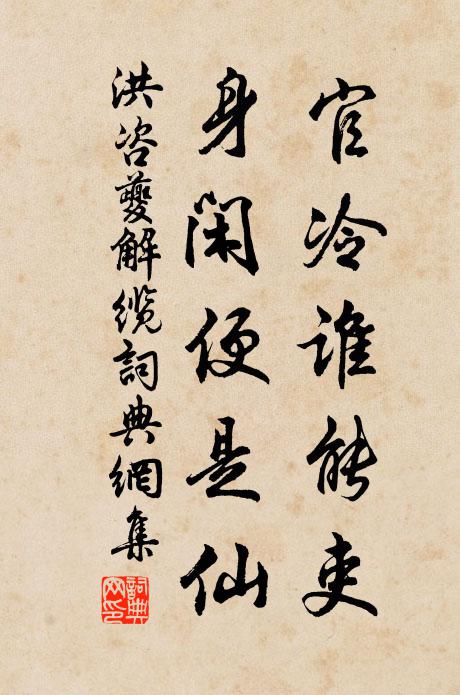 官冷谁能吏
身闲便是仙
洪咨夔解缆詞典網集
詞典
网印